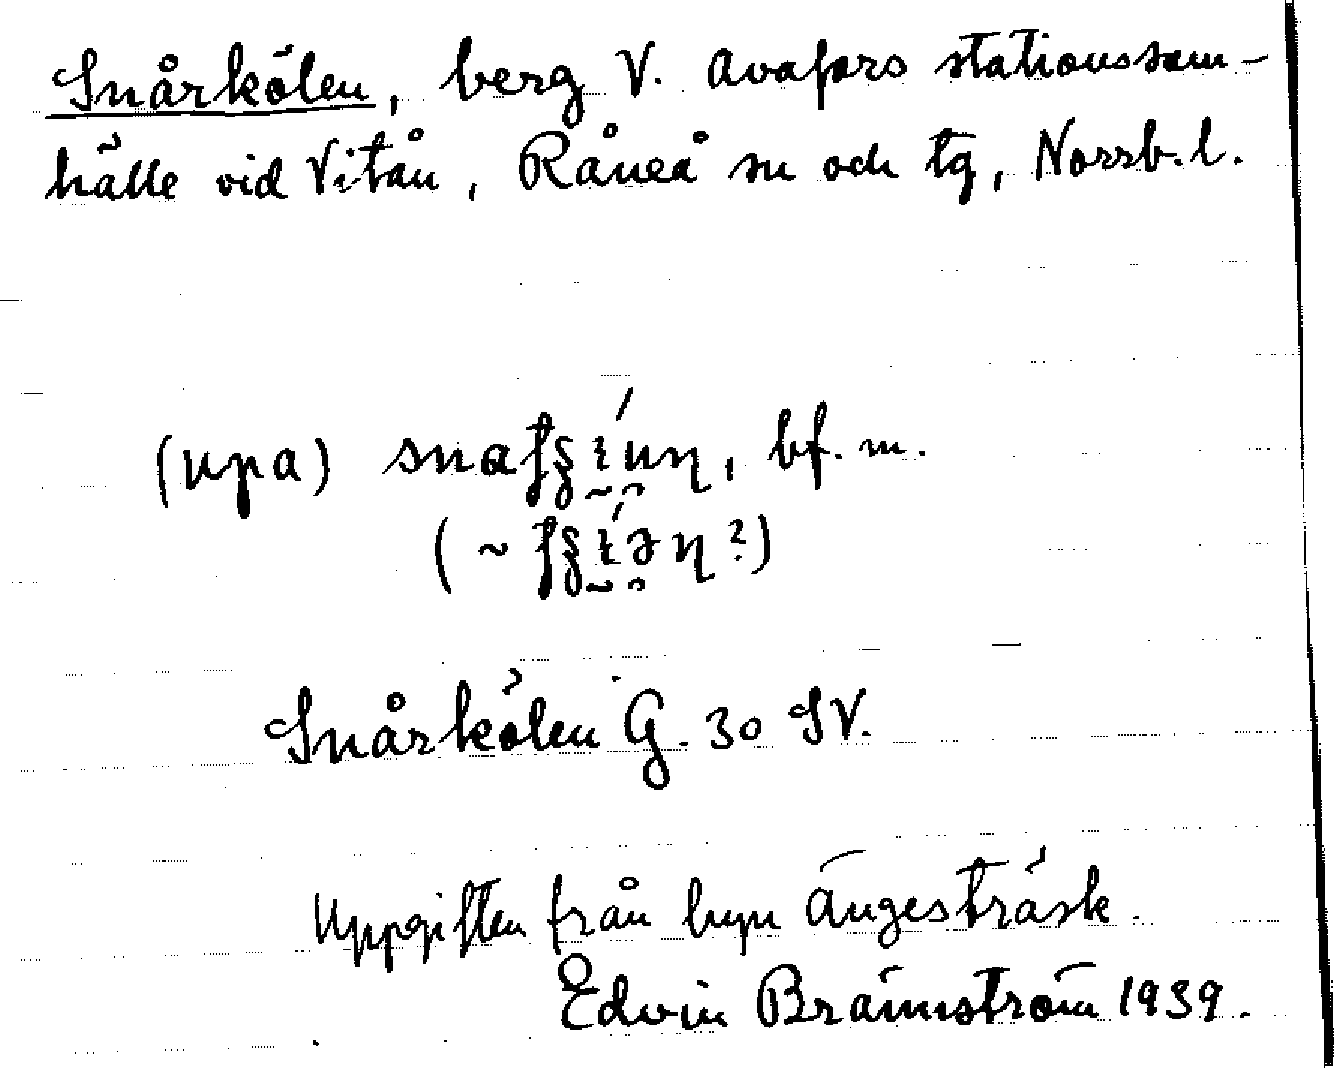 Snårkölen, berg V. Avafors stationssam-
hälle vid Vitån, Råneå sn och tg, Norrb. l.
(upa)
, bf. m.
(~ ?)
Snårkölen G. 30 SV.
Uppgiften från byn Ängesträsk.
Edvin Brännström 1939.